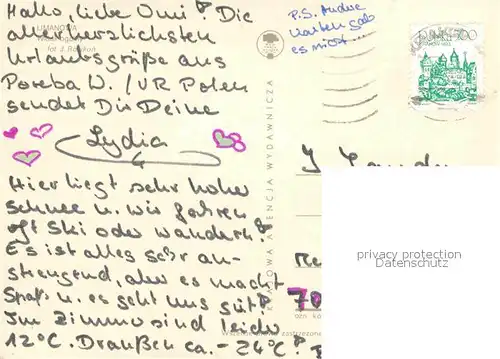 LIMANOWA
fot J. Białkon
Hallo, liebe Omi! Die
allerherzlichsten
Urlaubsgrüße aus
Poreba W. /VR Polen
sendet Dir Deine
Lydia
Hier liegt sehr hoher
Schnee u. wir fahren
oft Ski oder wandern!
Es ist alles sehr an-
strengend, aber es macht
Spaß u. es geht uns gut!
Im Zimmer sind leider
12°C. Draußen ca. -24°C!
KRAJOWA AGENCJA WYDAWNICZA
P.S. Andre
Karten gab
es nicht
privacy protection
Datenschutz
70